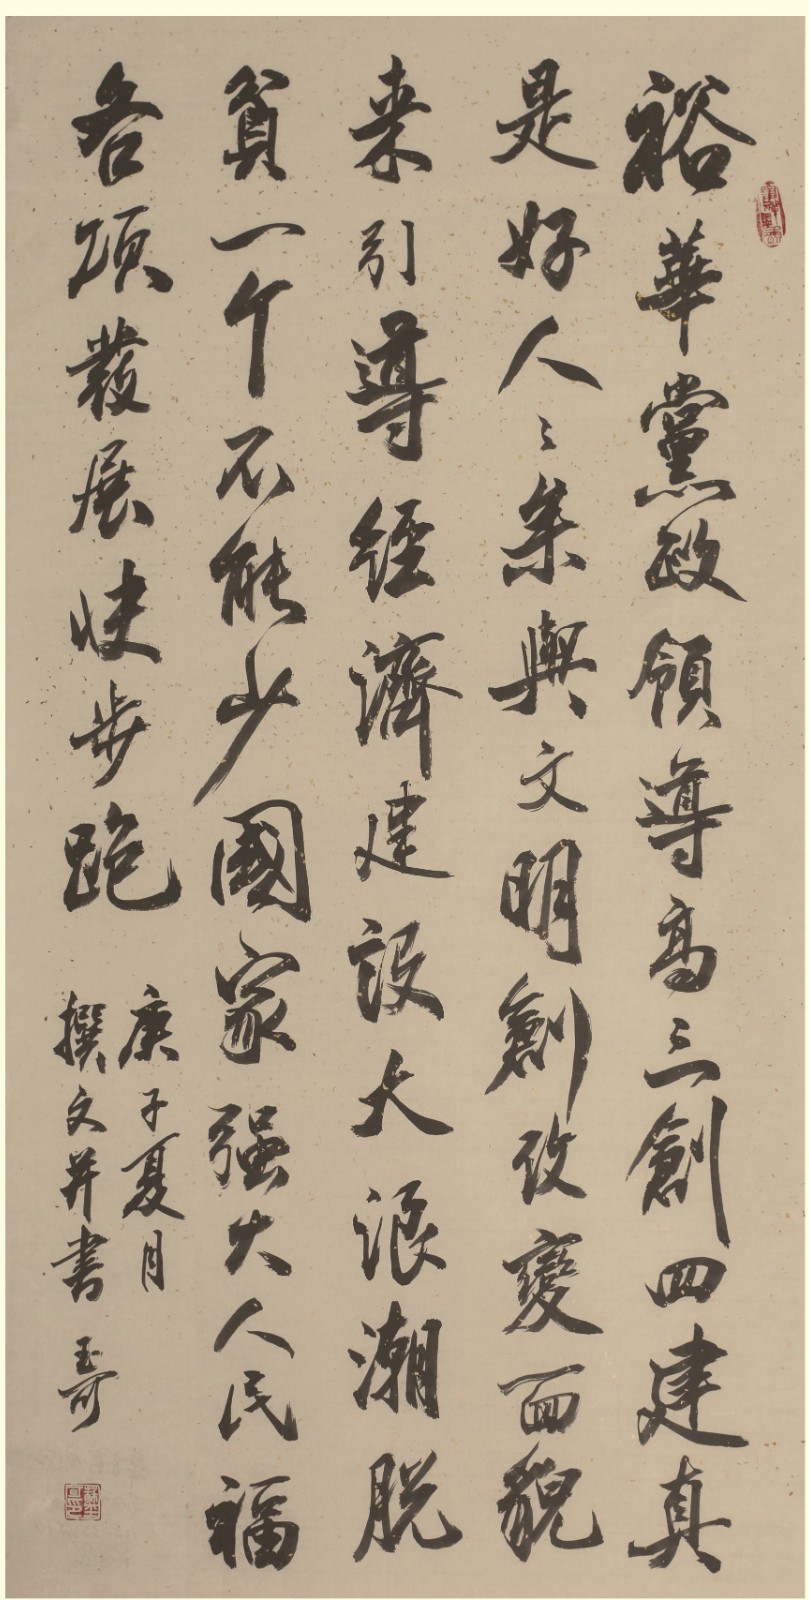 裕華黨政領導高三創四建真
是好人〻參與文明創改變面貌
来引導經濟建設大浪潮脱
貧一个不能少國家强大人民福
各項發展快步跑
庚子夏月
撰文并書